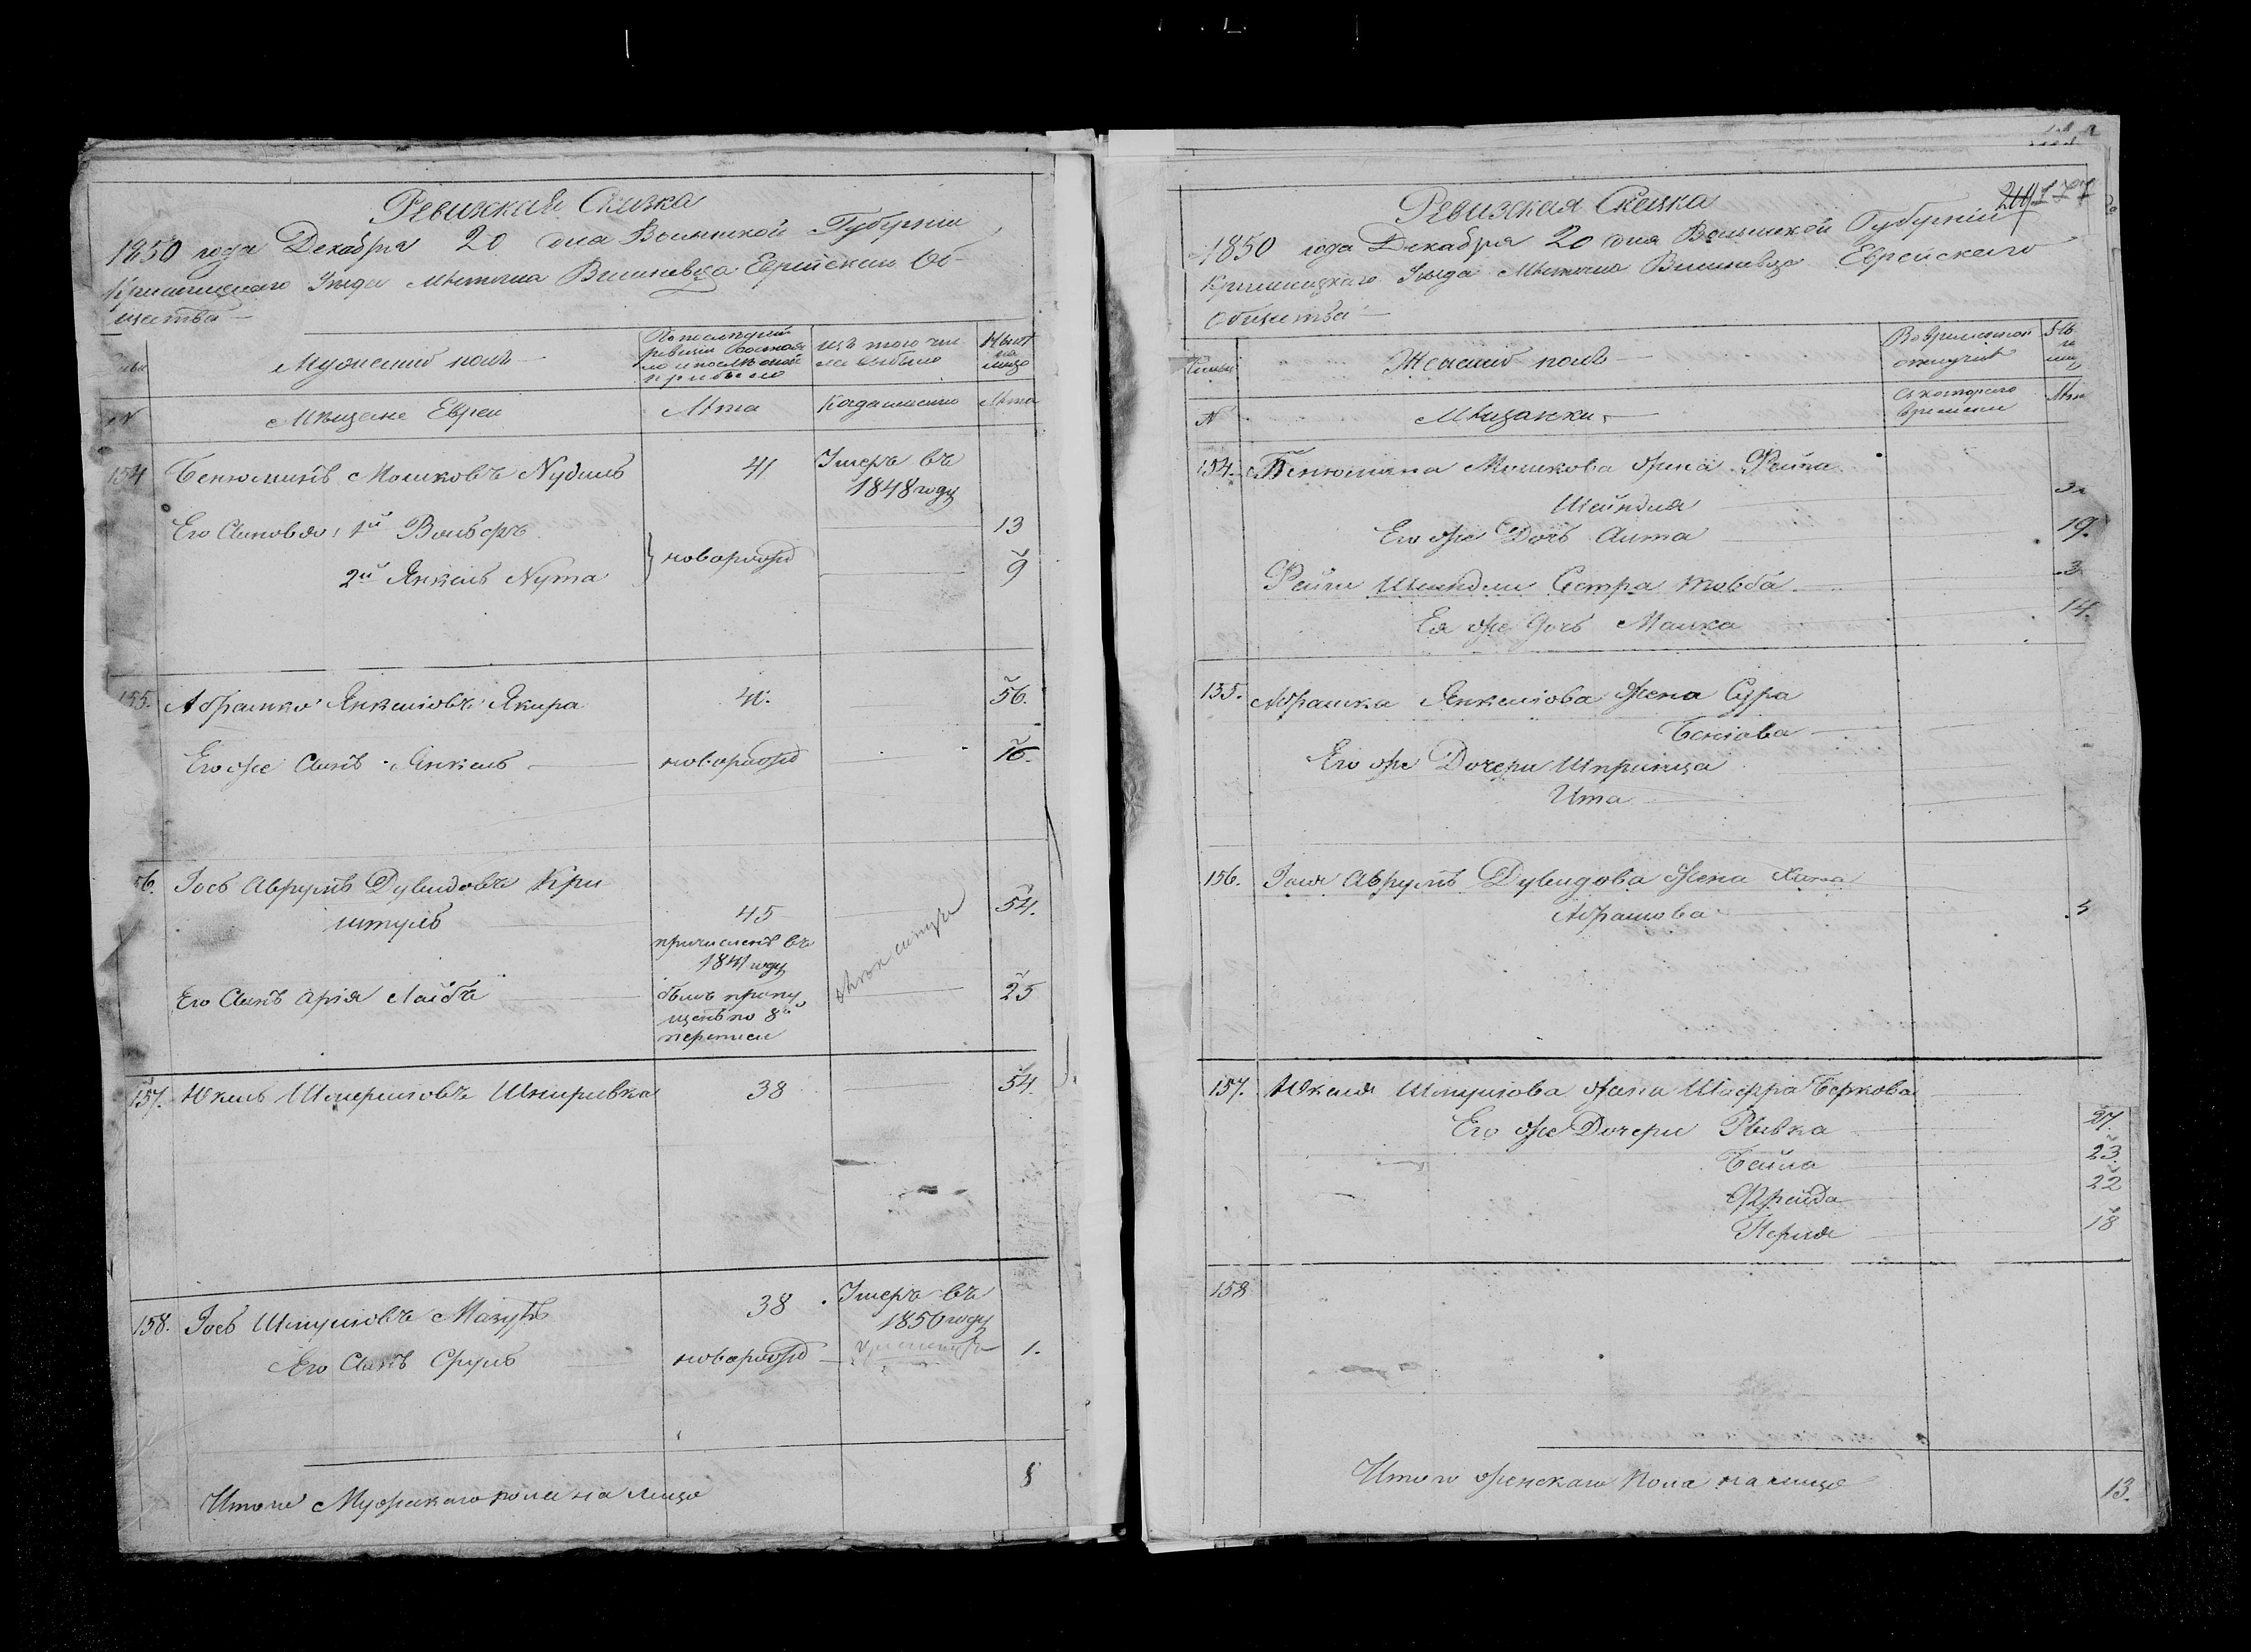 Ревизская Сказка
1850 года Декабря 20 дня Волынской Губернии
Кременецкаго Уезда Местечка Вишневца Еврейскаго Об-
щества
Мужеский полъ
По последней ревизіи состояло и после оной прибыло
изъ того числа выбыло
Ныне на лицо
№
Мещане Евреи
Лета
Когда именно
Лета
154 Бенюминъ Мошковъ Нудель 41 Умеръ въ
1848 году
Его Сыновья: 1й Вольфъ 13
новорожд
2й Янкель Нута 9
155. Абрамко Янкелiовъ Якира
56.
Его же Сынъ Янкель новорожд 16.
56. Іось Аврумъ Дувидовъ Кри
штуль 45 54.
причисленъ въ
1841 году
Его Сынъ Арія Лейбъ 25
былъ пропу
щенъ по 8й
переписи
157. Шмерiовъ 38 54.
158. Іось Шмулiовъ Мазуръ 38 Умеръ въ
1850 году
Его Сынъ Сруль новорожд 1.
Итого Мужескаго пола на лицо 8
177
Ревизская Сказка
1850 года Декабря 20 дня Волынской Губерніи
Кременецкаго Уезда Местечка Вишневца Еврейскаго
Общества
Семьи
Женский полъ
Во временной отлучке
№
Мещанки
Съ котораго времени
Лета
154. Бенюмина Мошкова жена Фейга
Шейндля
Его же Дочь 19.
Фейги Шейндли Сестра Товба 3
Ея же дочь Малка 14.
155. Абрамка Янкелiова жена Сура
Бенiова
Его же Дочери Шпринца
Ита
156. Іося Аврумъ Дувидова жена
Абрамова
157. жена Шифра Беркова
Его же Дочери Ривка 27.
Бейла 23
Фрейда 22
Перля 18
158
Итого женскаго Пола на лицо 13.